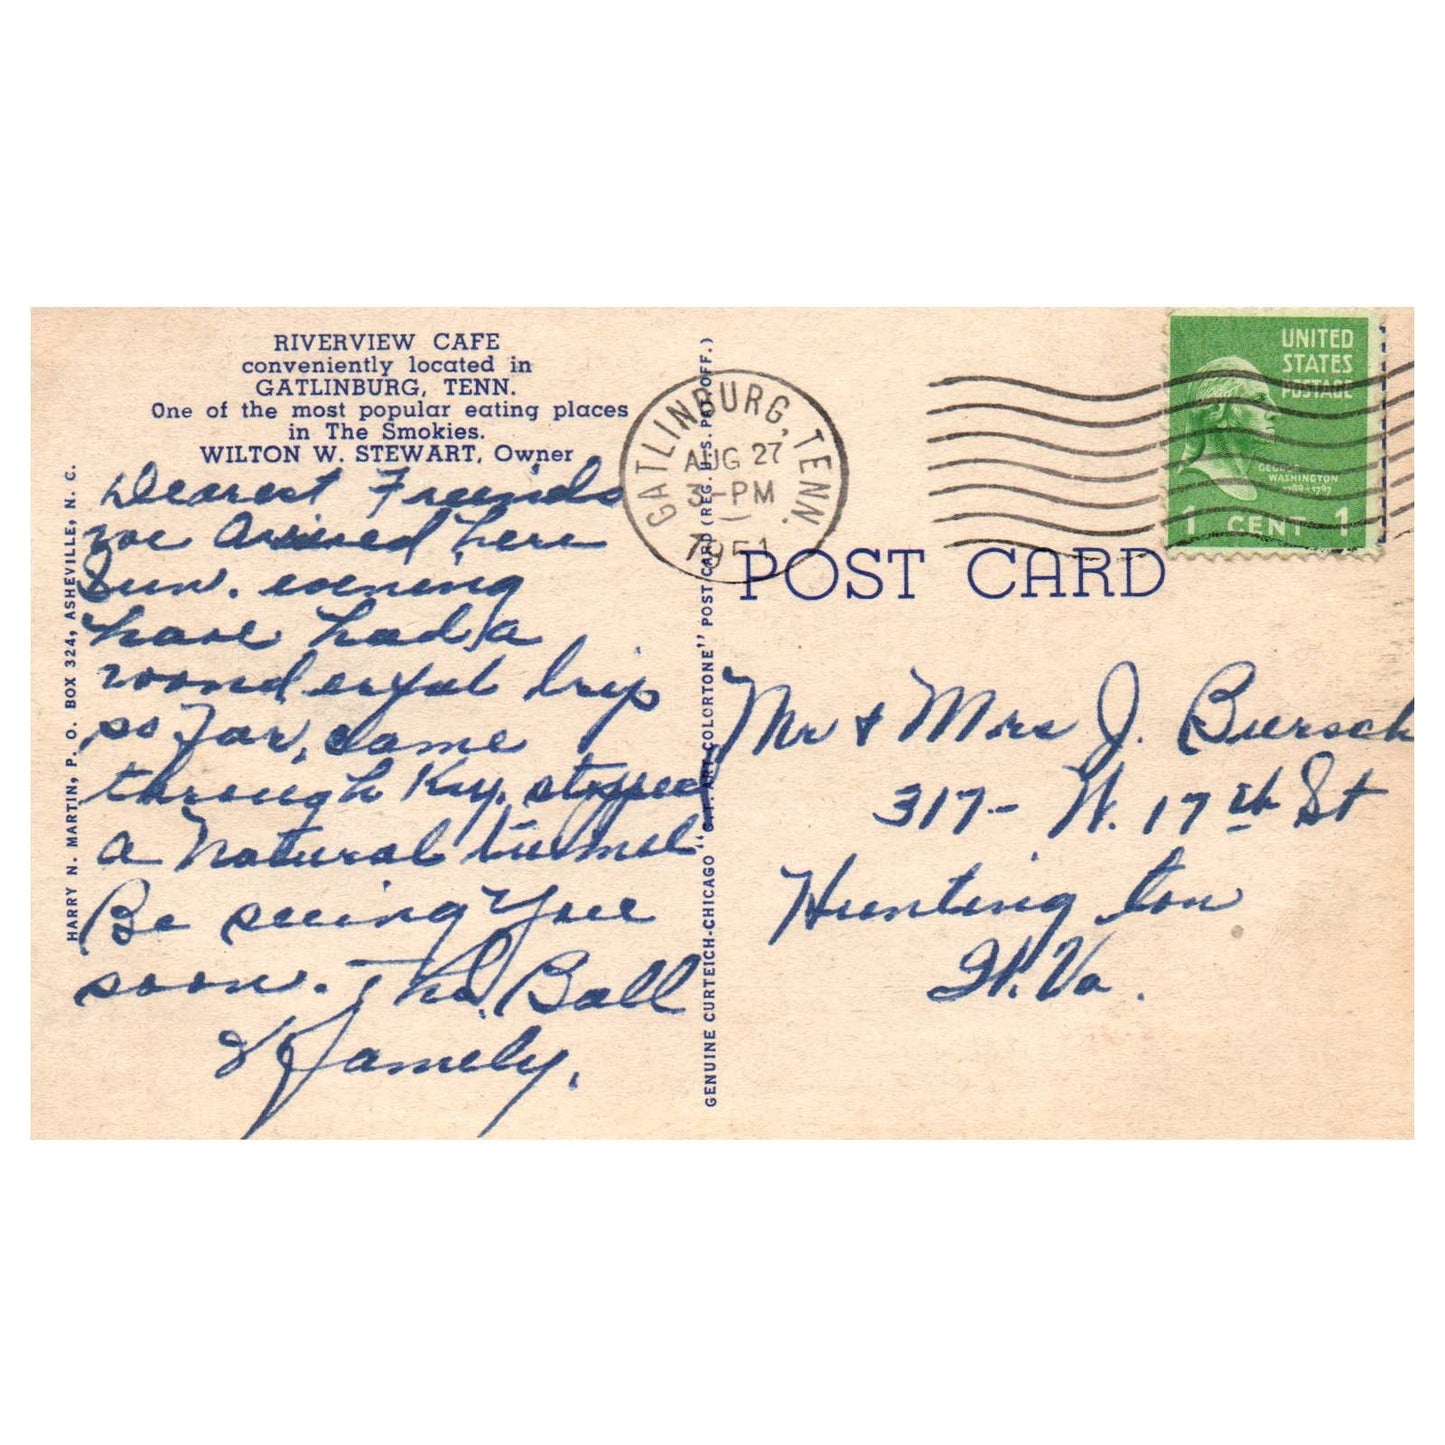 RIVERVIEW CAFE
conveniently located in
GATLINBURG, TENN.
One of the most popular eating places
in The Smokies.
WILTON W. STEWART, Owner
Dearest Friends
we Arrived here
Sun. evening
have had a
wonderful trip
so far, came
through Ky. stopped
a Natural tunnel
Be seeing You
soon. The Ball
& Family.
HARRY N. MARTIN, P. O. BOX 324, ASHEVILLE, N. C.
GENUINE CURTEICH-CHICAGO "C.T. ART-COLORTONE" POST CARD (REG. U.S. PAT. OFF.)
GATLINBURG, TENN.
AUG 27
3-PM
1951
UNITED
STATES
POSTAGE
GEORGE
WASHINGTON
1789-1797
1 CENT 1
POST CARD
Mr & Mrs J. Buersch
317- W. 17th St
Huntington
W. Va.